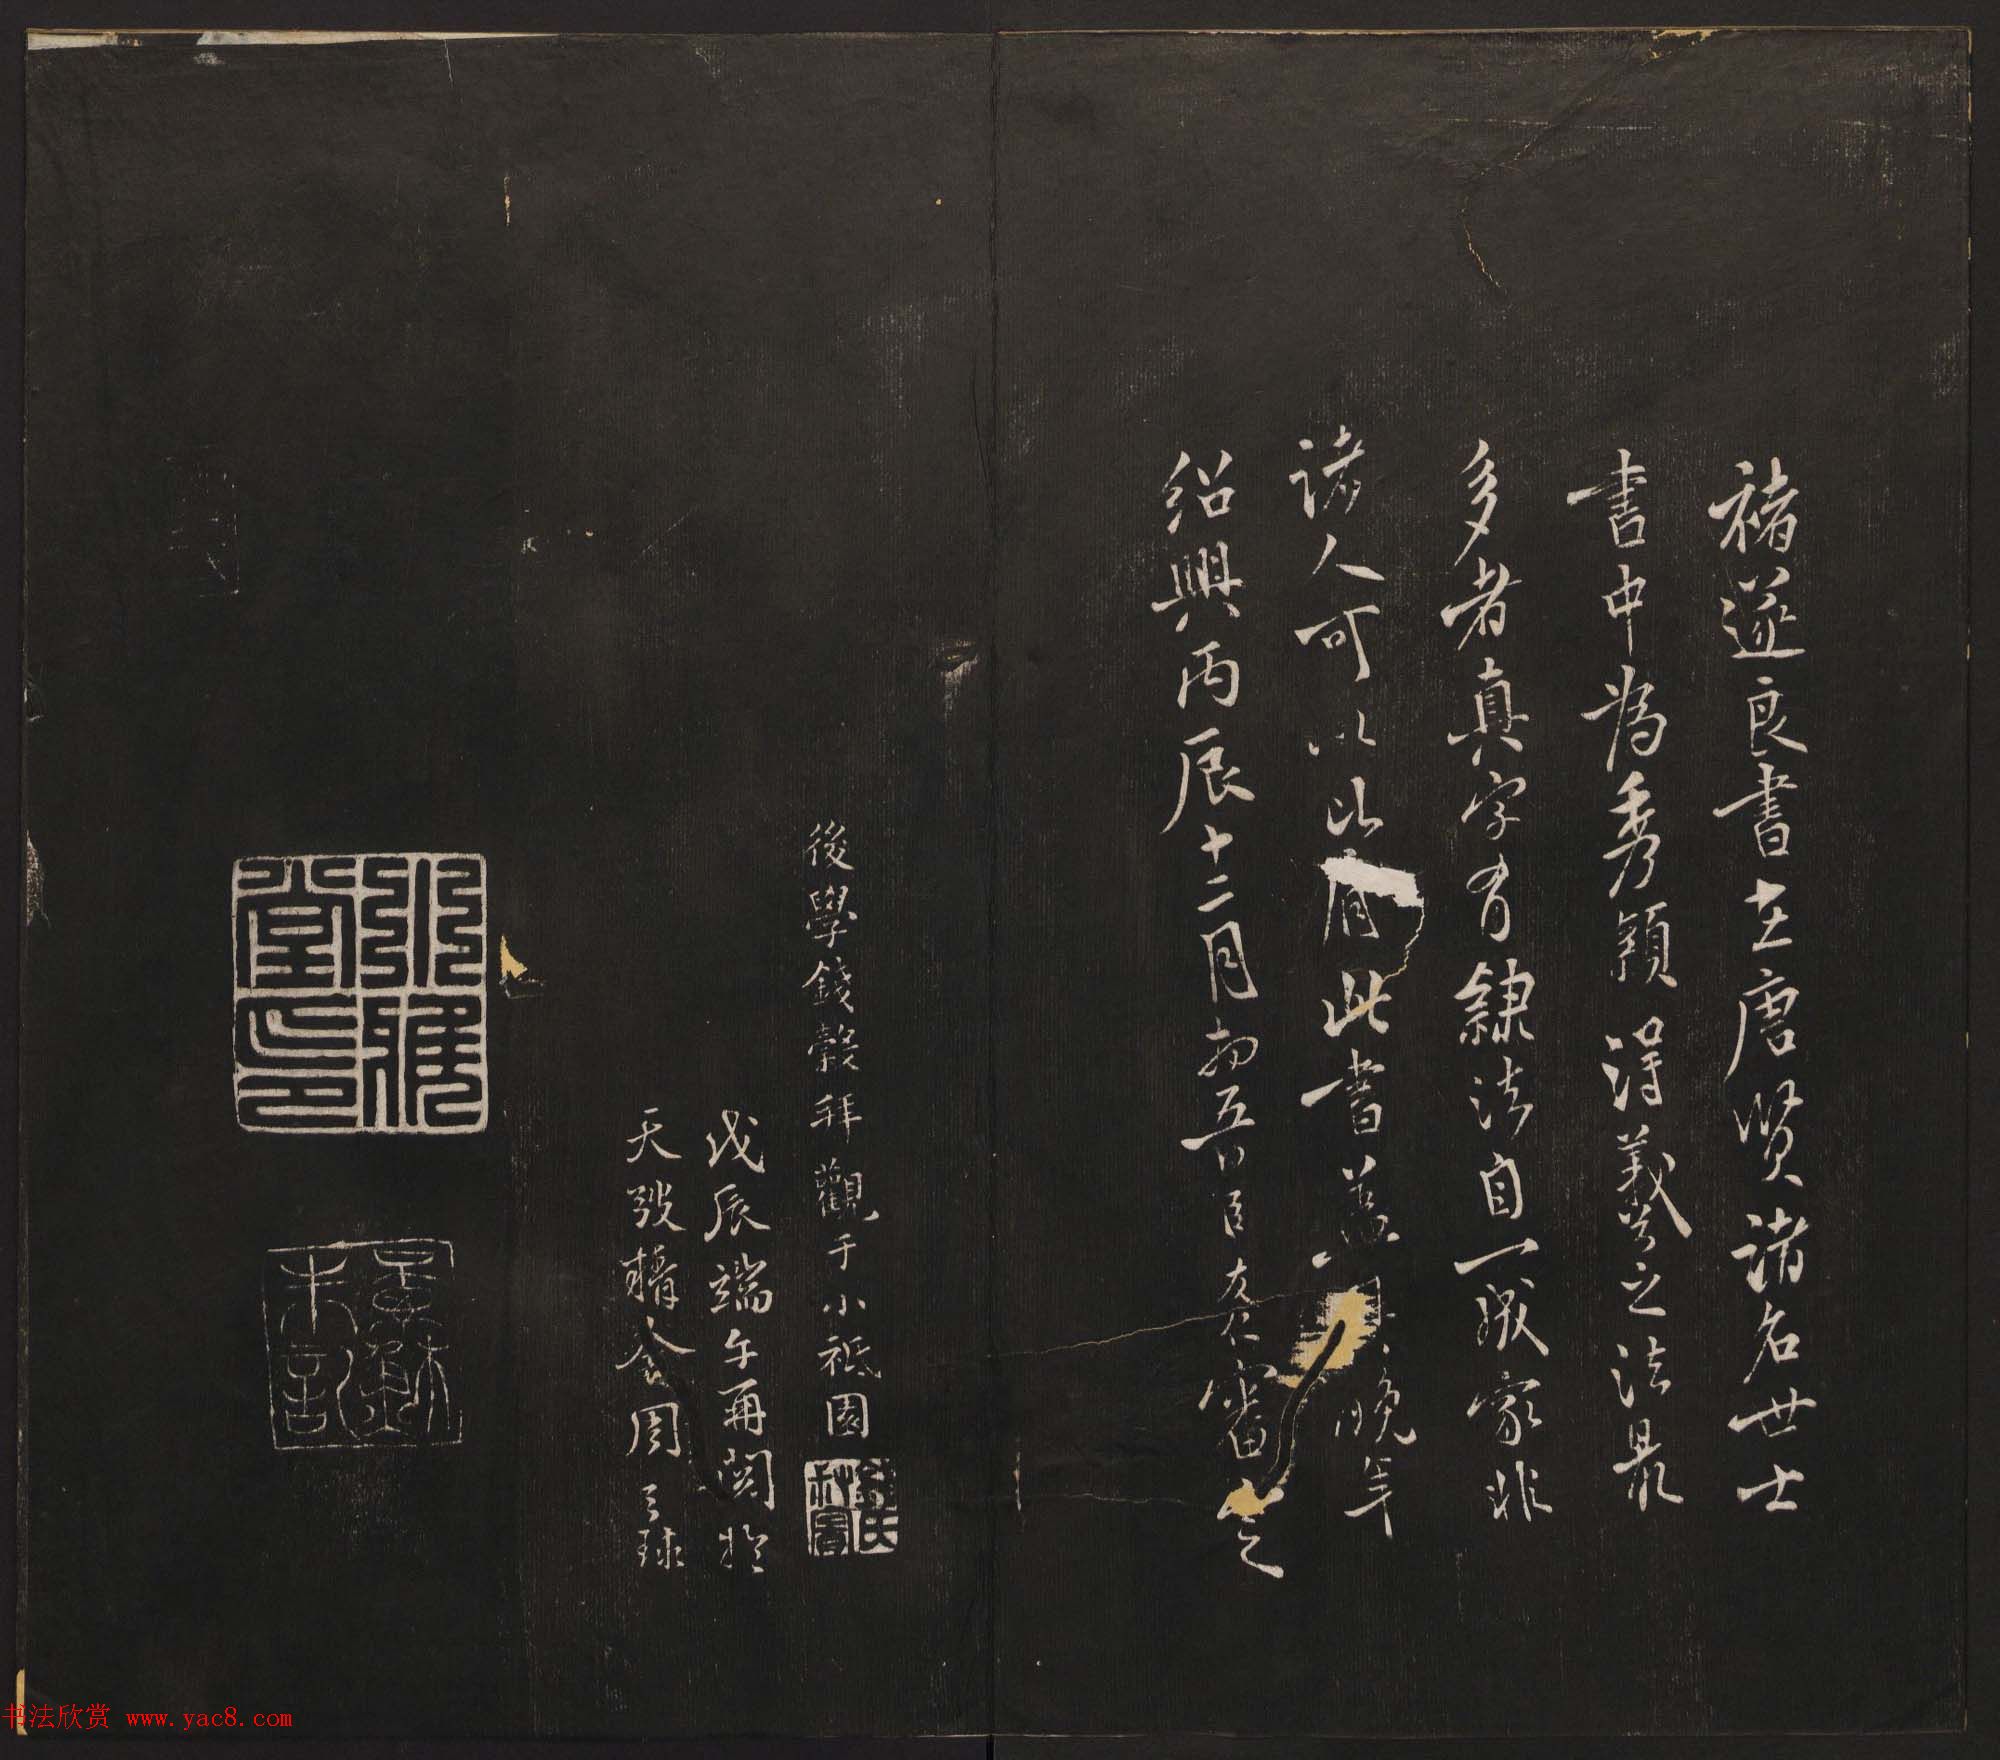 褚遂良書在唐賢諸名世士
書中為秀穎得羲之之法最
多者真字有隸法自一成家非
諸人可以比肩此書蓋其晚年
紹興丙辰十二月初五日臣友仁審定
後學錢穀拜觀于小祗園
戊辰端午再閱於
天弢精舍周天球
书法欣赏 www.yac8.com